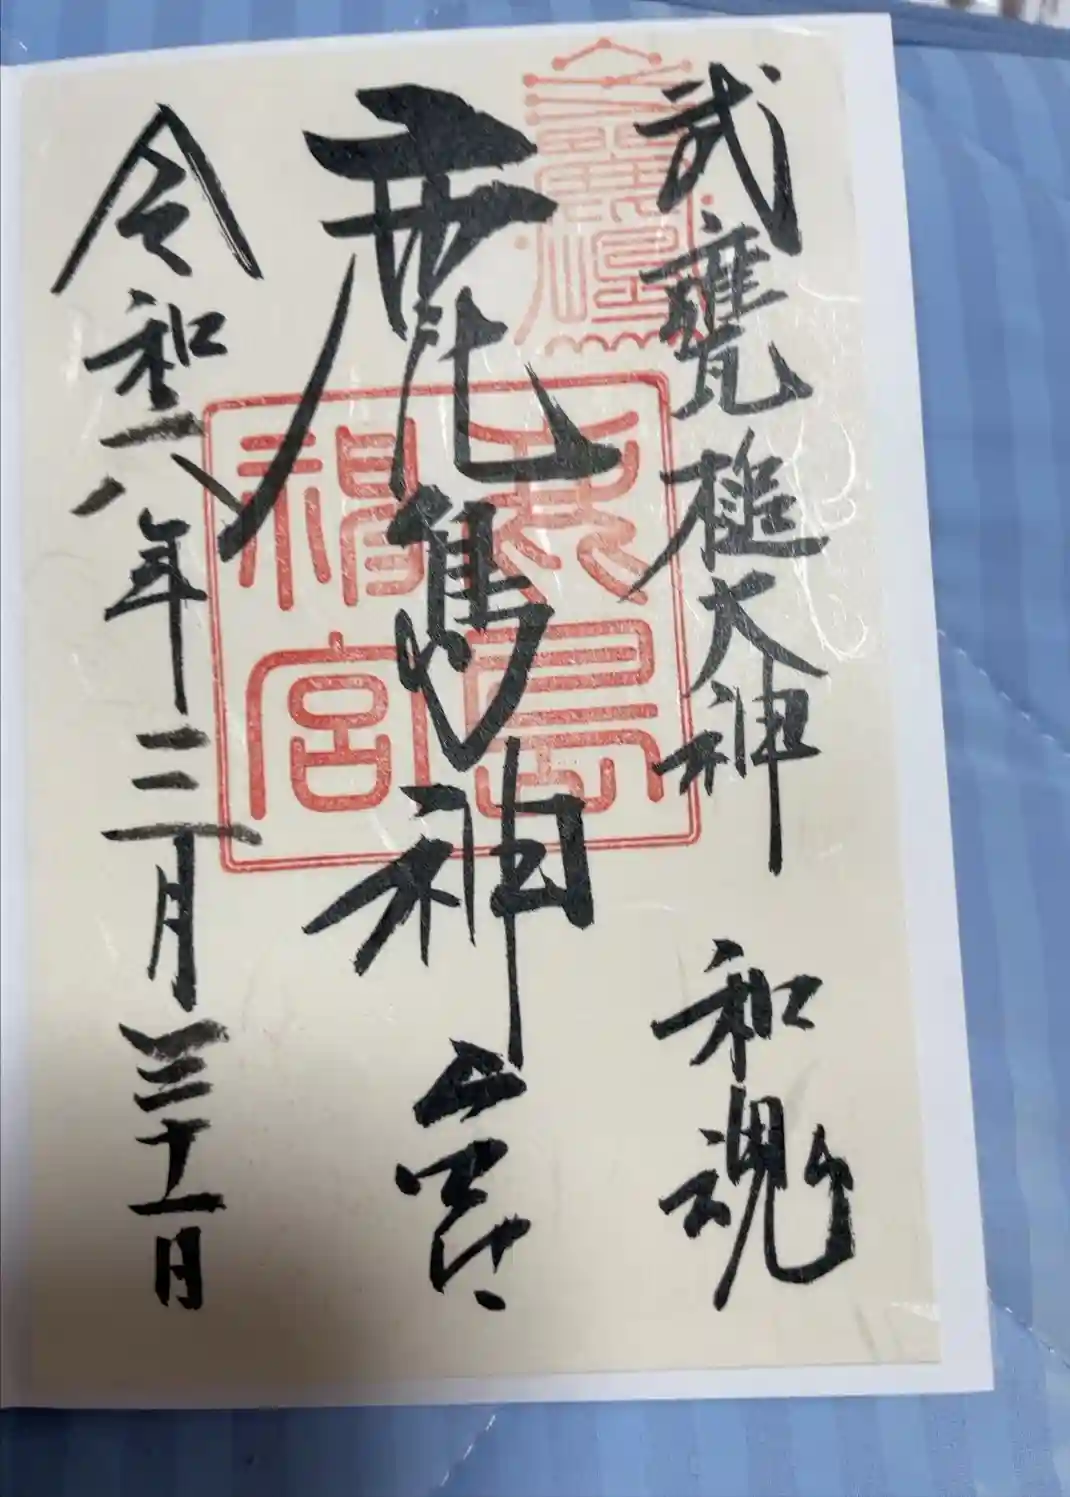 武甕槌大神 和魂
鹿島神宮
令和八年三月三十一日
鹿島神宮